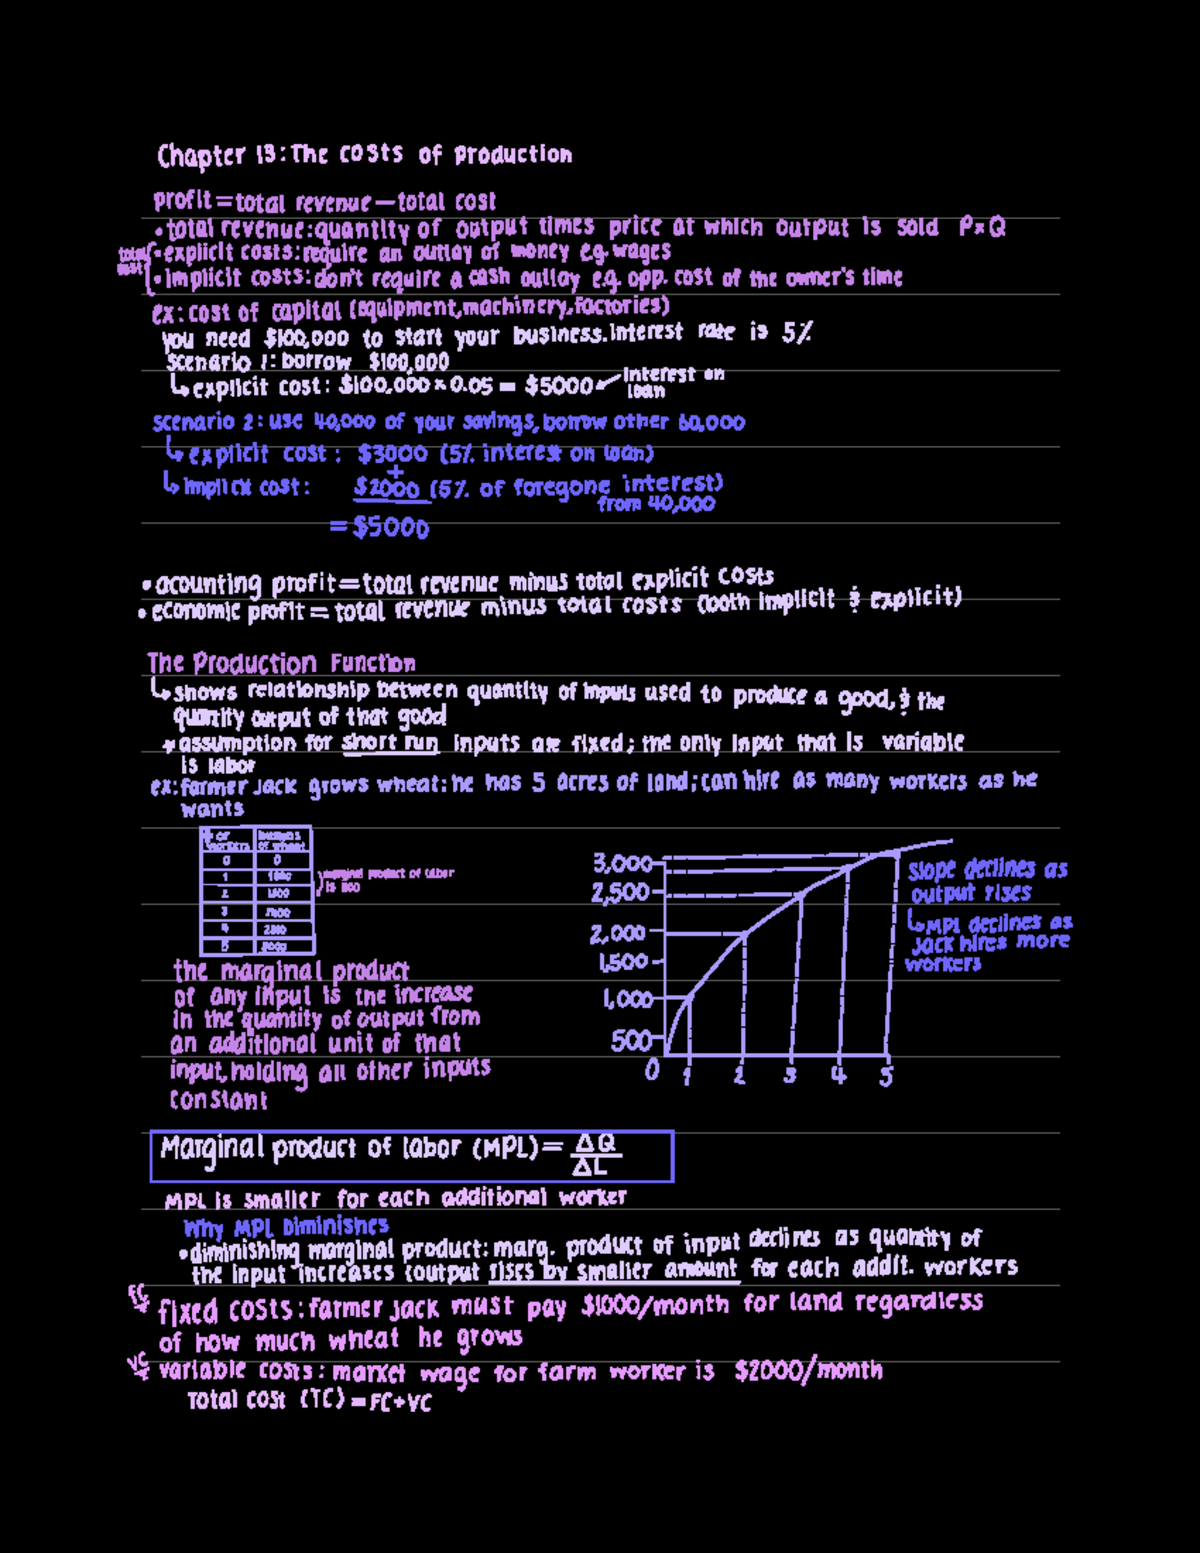 Chapter 13: The costs of Production
profit = total revenue — total cost
• total revenue: quantity of output times price at which output is sold P×Q
total cost
• explicit costs: require an outlay of money e.g. wages
• implicit costs: don't require a cash outlay e.g. opp. cost of the owner's time
ex: cost of capital (equipment, machinery, factories)
you need $100,000 to start your business. Interest rate is 5%
scenario 1: borrow $100,000
↳ explicit cost: $100,000 × 0.05 = $5000 ↙ interest on
loan
scenario 2: use 40,000 of your savings, borrow other 60,000
↳ explicit cost: $3000 (5% interest on loan)
+
↳ implicit cost: $2000 (5% of foregone interest)
from 40,000
= $5000
• acounting profit = total revenue minus total explicit costs
• economic profit = total revenue minus total costs (both implicit & explicit)
The Production Function
↳ shows relationship between quantity of inputs used to produce a good, & the
quantity output of that good
* assumption for short run inputs are fixed; the only input that is variable
is labor
ex: farmer Jack grows wheat: he has 5 acres of land; can hire as many workers as he
wants
# of workers bushels of wheat
0 0
1 1000
2 1800
3 2400
4 2800
5 3000
marginal product of labor
is 800
3,000
2,500
2,000
1,500
1,000
500
0 1 2 3 4 5
slope declines as
output rises
↳ MPL declines as
Jack hires more
workers
the marginal product
of any input is the increase
in the quantity of output from
an additional unit of that
input, holding all other inputs
constant
Marginal product of labor (MPL) = ΔQ
ΔL
MPL is smaller for each additional worker
Why MPL Diminishes
• diminishing marginal product: marg. product of input declines as quantity of
the input increases (output rises by smaller amount for each addit. workers
FC
↳ fixed costs: farmer Jack must pay $1000/month for land regardless
of how much wheat he grows
VC
↳ variable costs: market wage for farm worker is $2000/month
Total cost (TC) = FC+VC